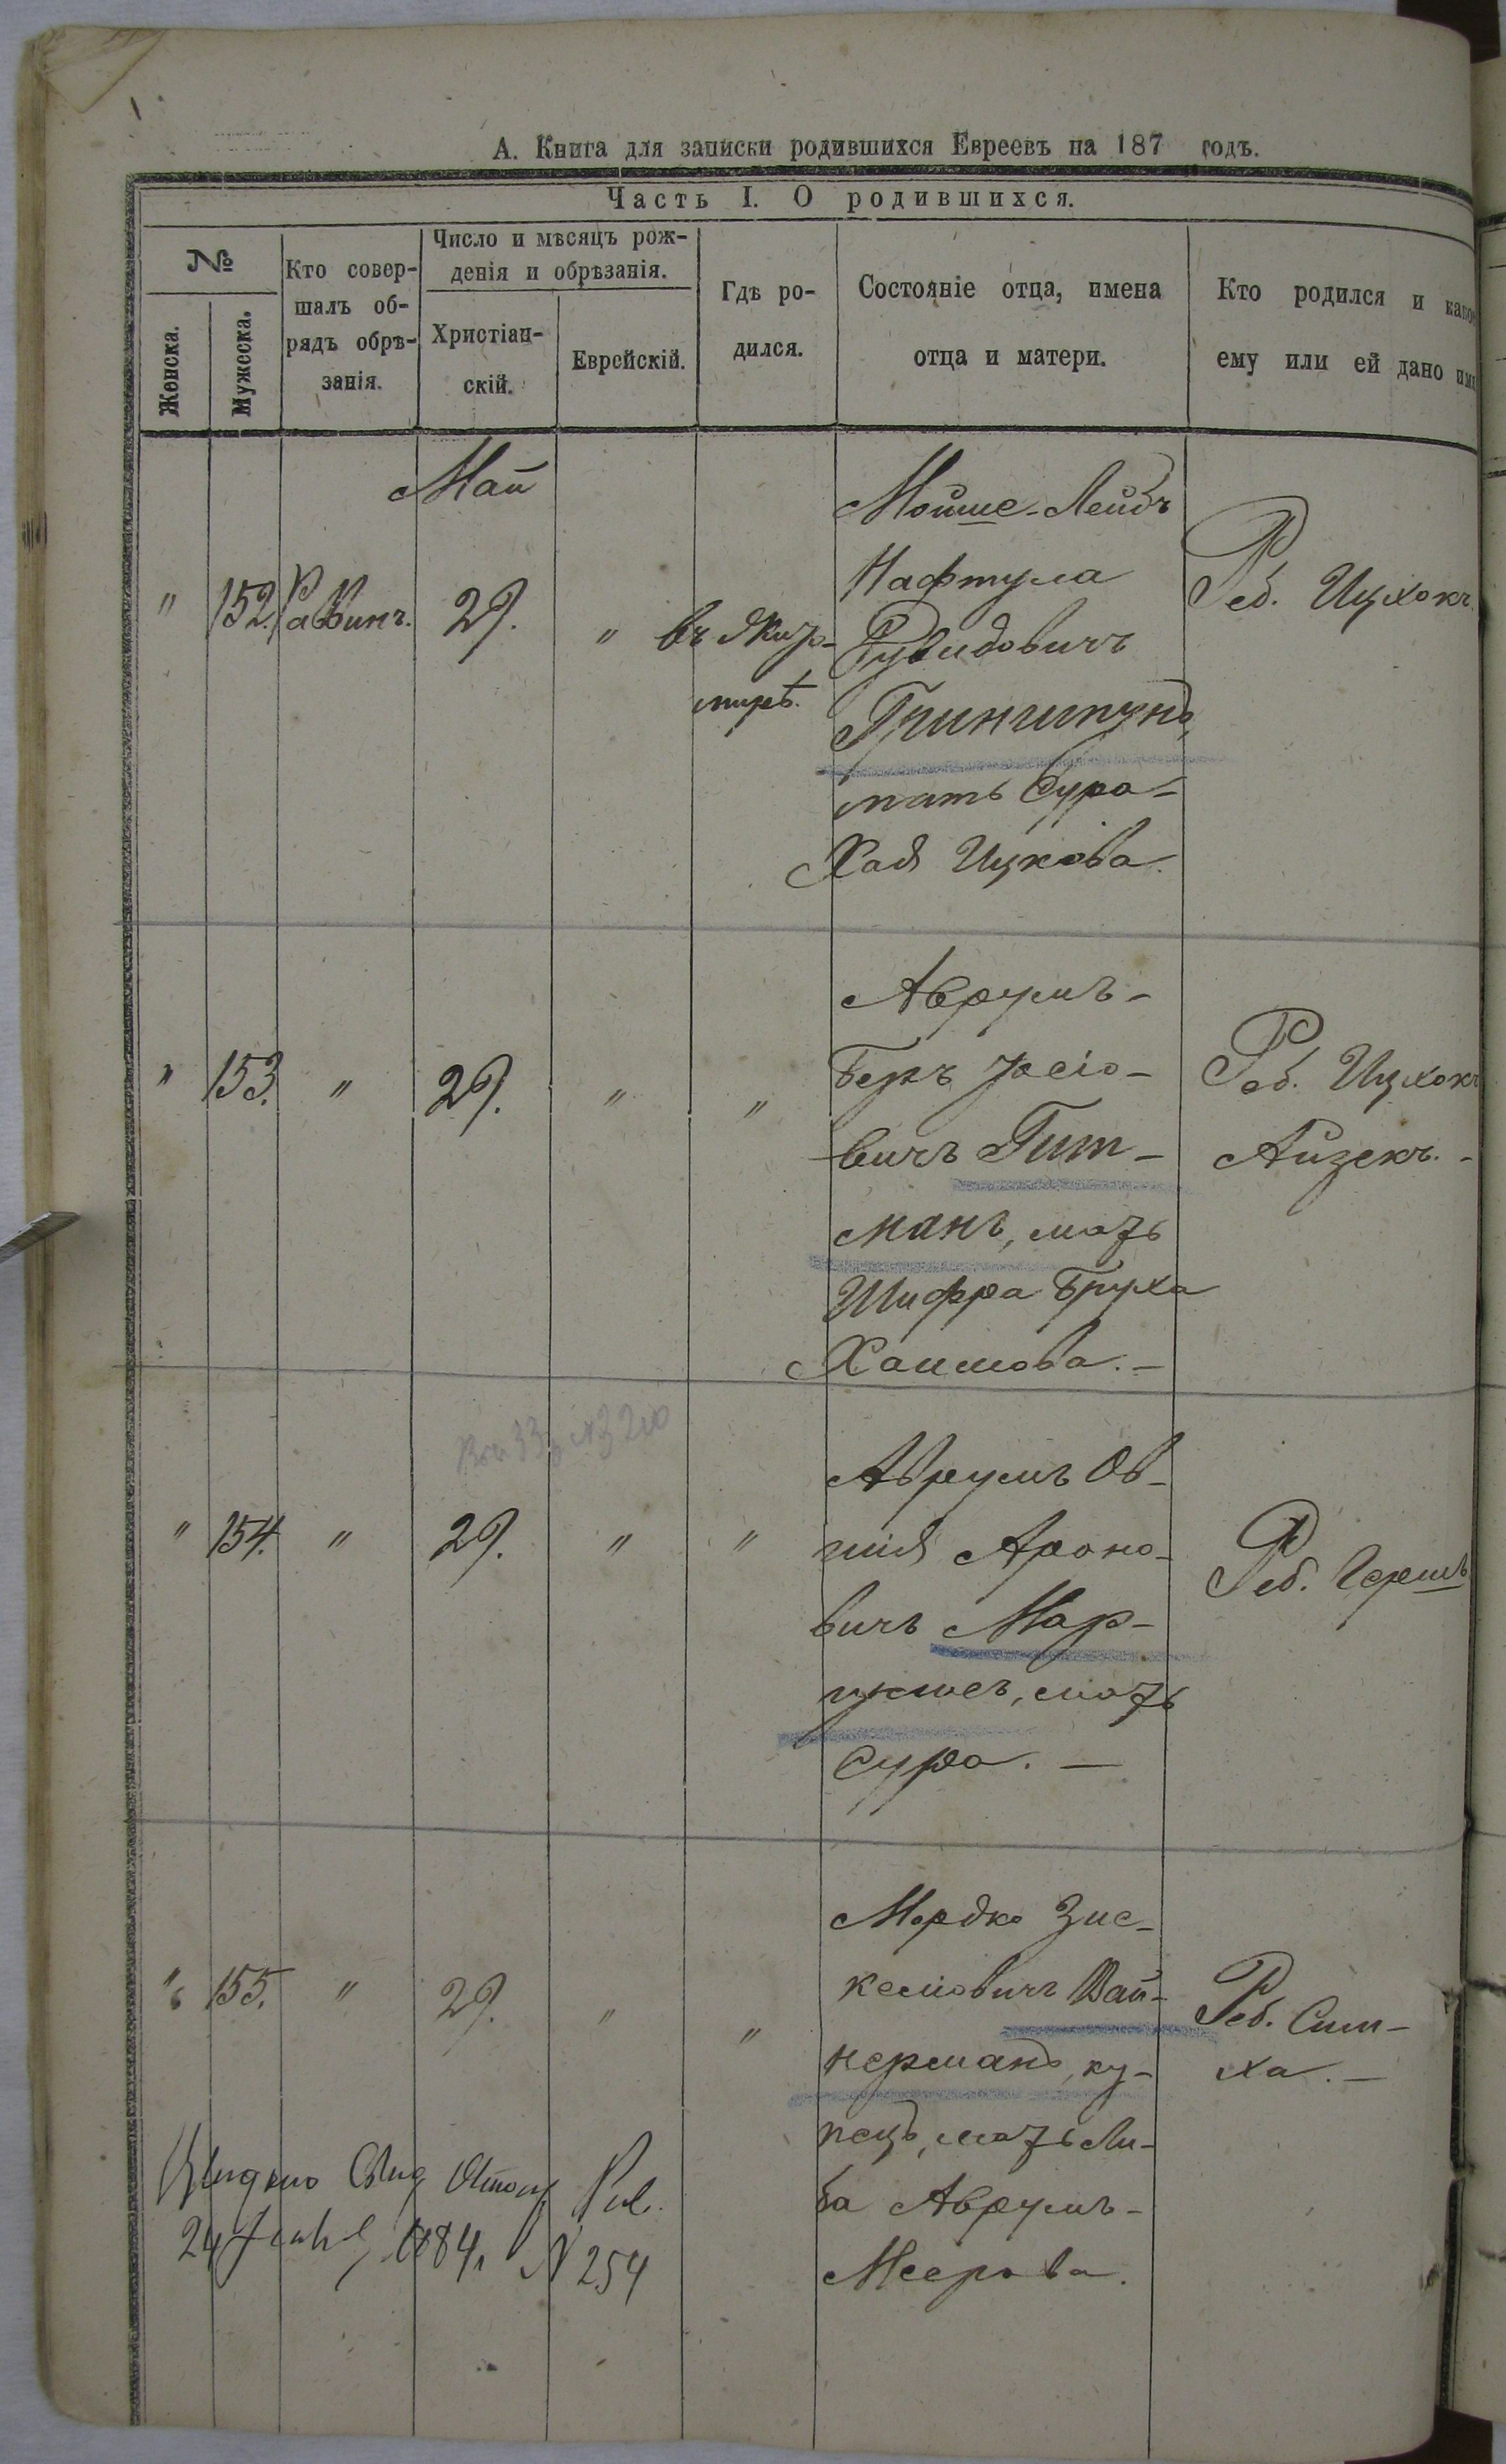 А. Книга для записки родившихся Евреевъ на 187 годъ.
Часть I. О родившихся.
№
Женска.
Мужеска.
Кто совер-
шалъ об-
рядъ обрѣ-
занія.
Число и мѣсяцъ рож-
денія и обрѣзанія.
Христіан-
скій.
Еврейскій.
Гдѣ ро-
дился.
Состояніе отца, имена
отца и матери.
Кто родился и какое
ему или ей дано имя
Май
" 152. Равинъ. 29. " въ Жито-
мирѣ.
Мойше-Лейбъ
Нафтула
Рувидовичъ
Гриншпунъ,
мать Сура-
Хая Ицкова.
Реб. Ицхокъ.
" 153. " 29. " "
Аврумъ-
Беръ Іосіо-
вичъ Гит-
манъ, мать
Шифра Бруха
Хаимова.-
Реб. Ицхокъ
Айзекъ.-
" 154. " 29. " "
Аврумъ Ов-
шія Ароно-
вичъ Мар-
мать
Сура.-
Реб. Гершъ
" 155. " 29. " "
Мордко Зис-
келіовичъ Вай-
нерманъ, ку-
пецъ, мать Ли-
ба Аврумъ-
Меерова.
Реб. Сим-
ха.-
24 1884 N 254